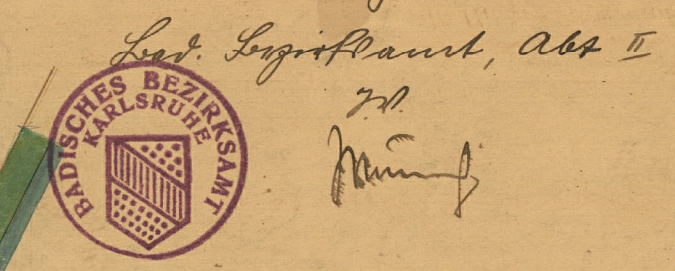 Bad. Bezirksamt, Abt II
J.V.
BADISCHES BEZIRKSAMT
KARLSRUHE